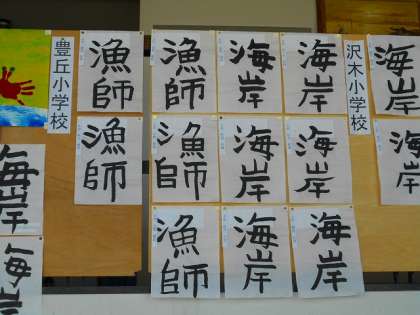 豊丘小学校
漁師
漁師
海岸
海岸
沢木小学校
海岸
漁師
漁師
海岸
海岸
海岸
海岸
漁師
海岸
海岸
海岸